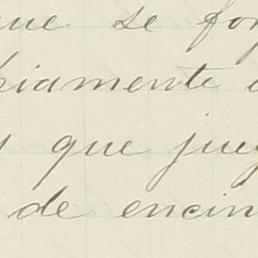 que se for
piamente
que jueg
de encin